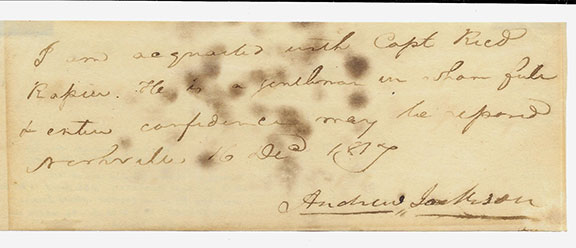 I am acquainted with Capt Richd
Rapier. He is a gentleman in whom full
& entire confidence may be reposed
Nashville 16 Decr 1817
Andrew Jackson